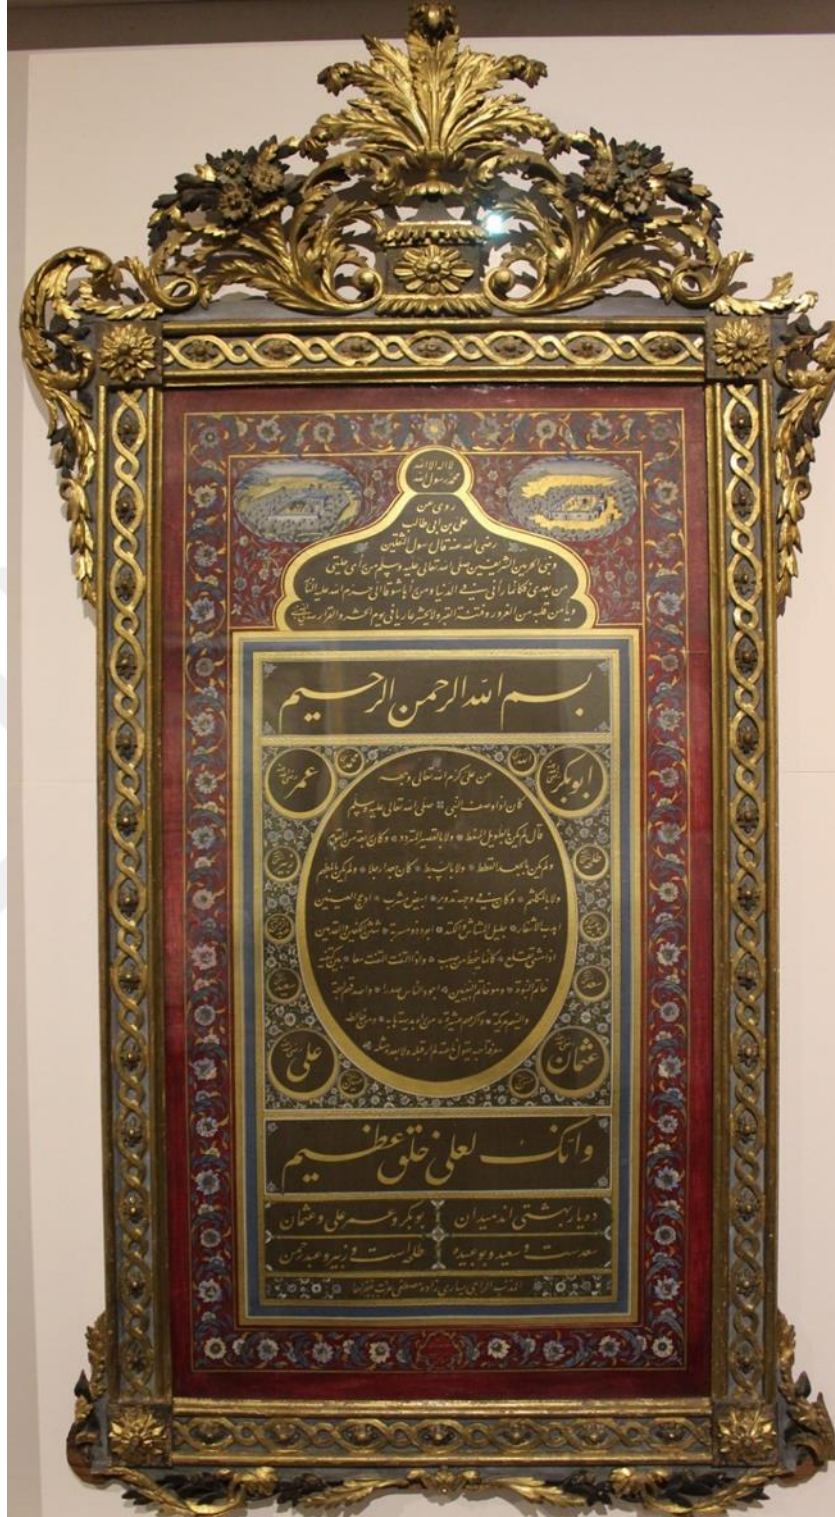 لا اله الا الله
محمد رسول الله
روى عن
على بن ابى طالب
رضى الله عنه قال رسول الثقلين
ونبى الحرمين الشريفين صلى الله تعالى عليه وسلم من رأى حليتى
من بعدى فكانما رآنى فى الدنيا ومن رآها شوقا الى حرم الله عليه النار
ويأمن قلبه من الغرور وفتنة القبر ولا يحشر عاريا فى يوم الحشر والقرار
بسم الله الرحمن الرحيم
الله
محمد
ابوبكر
عمر
عن على كرم الله تعالى وجهه
كان اذا وصف النبى صلى الله تعالى عليه وسلم
قال لم يكن بالطويل الممغط ولا بالقصير المتردد وكان ربعة من القوم
ولم يكن بالجعد القطط ولا بالسبط كان جعدا رجلا ولم يكن بالمطهم
ولا بالمكلثم وكان فى وجهه تدوير ابيض مشرب ادعج العينين
اهدب الاشفار جليل المشاش والكتد اجرد ذو مسربة شثن الكفين والقدمين
اذا مشى تقلع كانما ينحط من صبب واذا التفت التفت معا بين كتفيه
خاتم النبوة وهو خاتم النبيين اجود الناس صدرا واصدقهم لهجة
والينهم عريكة واكرمهم عشيرة من رآه بديهة هابه ومن خالطه
معرفة احبه يقول ناعته لم ار قبله ولا بعده مثله
طلحة
زبير
سعد
سعيد
عثمان
على
حسن
حسين
وانك لعلى خلق عظيم
ده يار بهشتى اند ميدان بوبكر وعمر على وعثمان
سعدست وسعيد وبوعبيده طلحه است وزبير وعبدرحمن
يسارى زاده مصطفى عزت